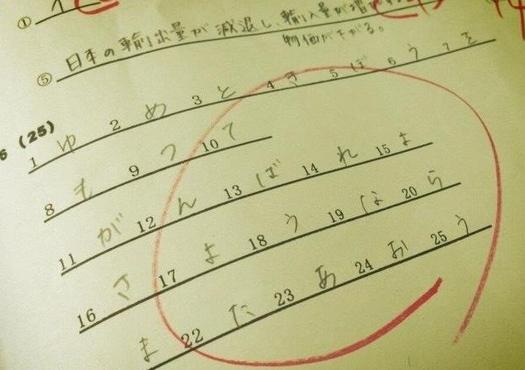 ①
⑤ 日本の輸出量が減退し、輸入量が
物価が下がる。
6 (25)
1 ゆ 2 め 3 と 4 き 5 ぼ 6 う 7 を
8 も 9 っ 10 て
11 が 12 ん 13 ば 14 れ 15 よ
16 さ 17 よ 18 う 19 な 20 ら
ま 22 た 23 あ 24 お 25 う